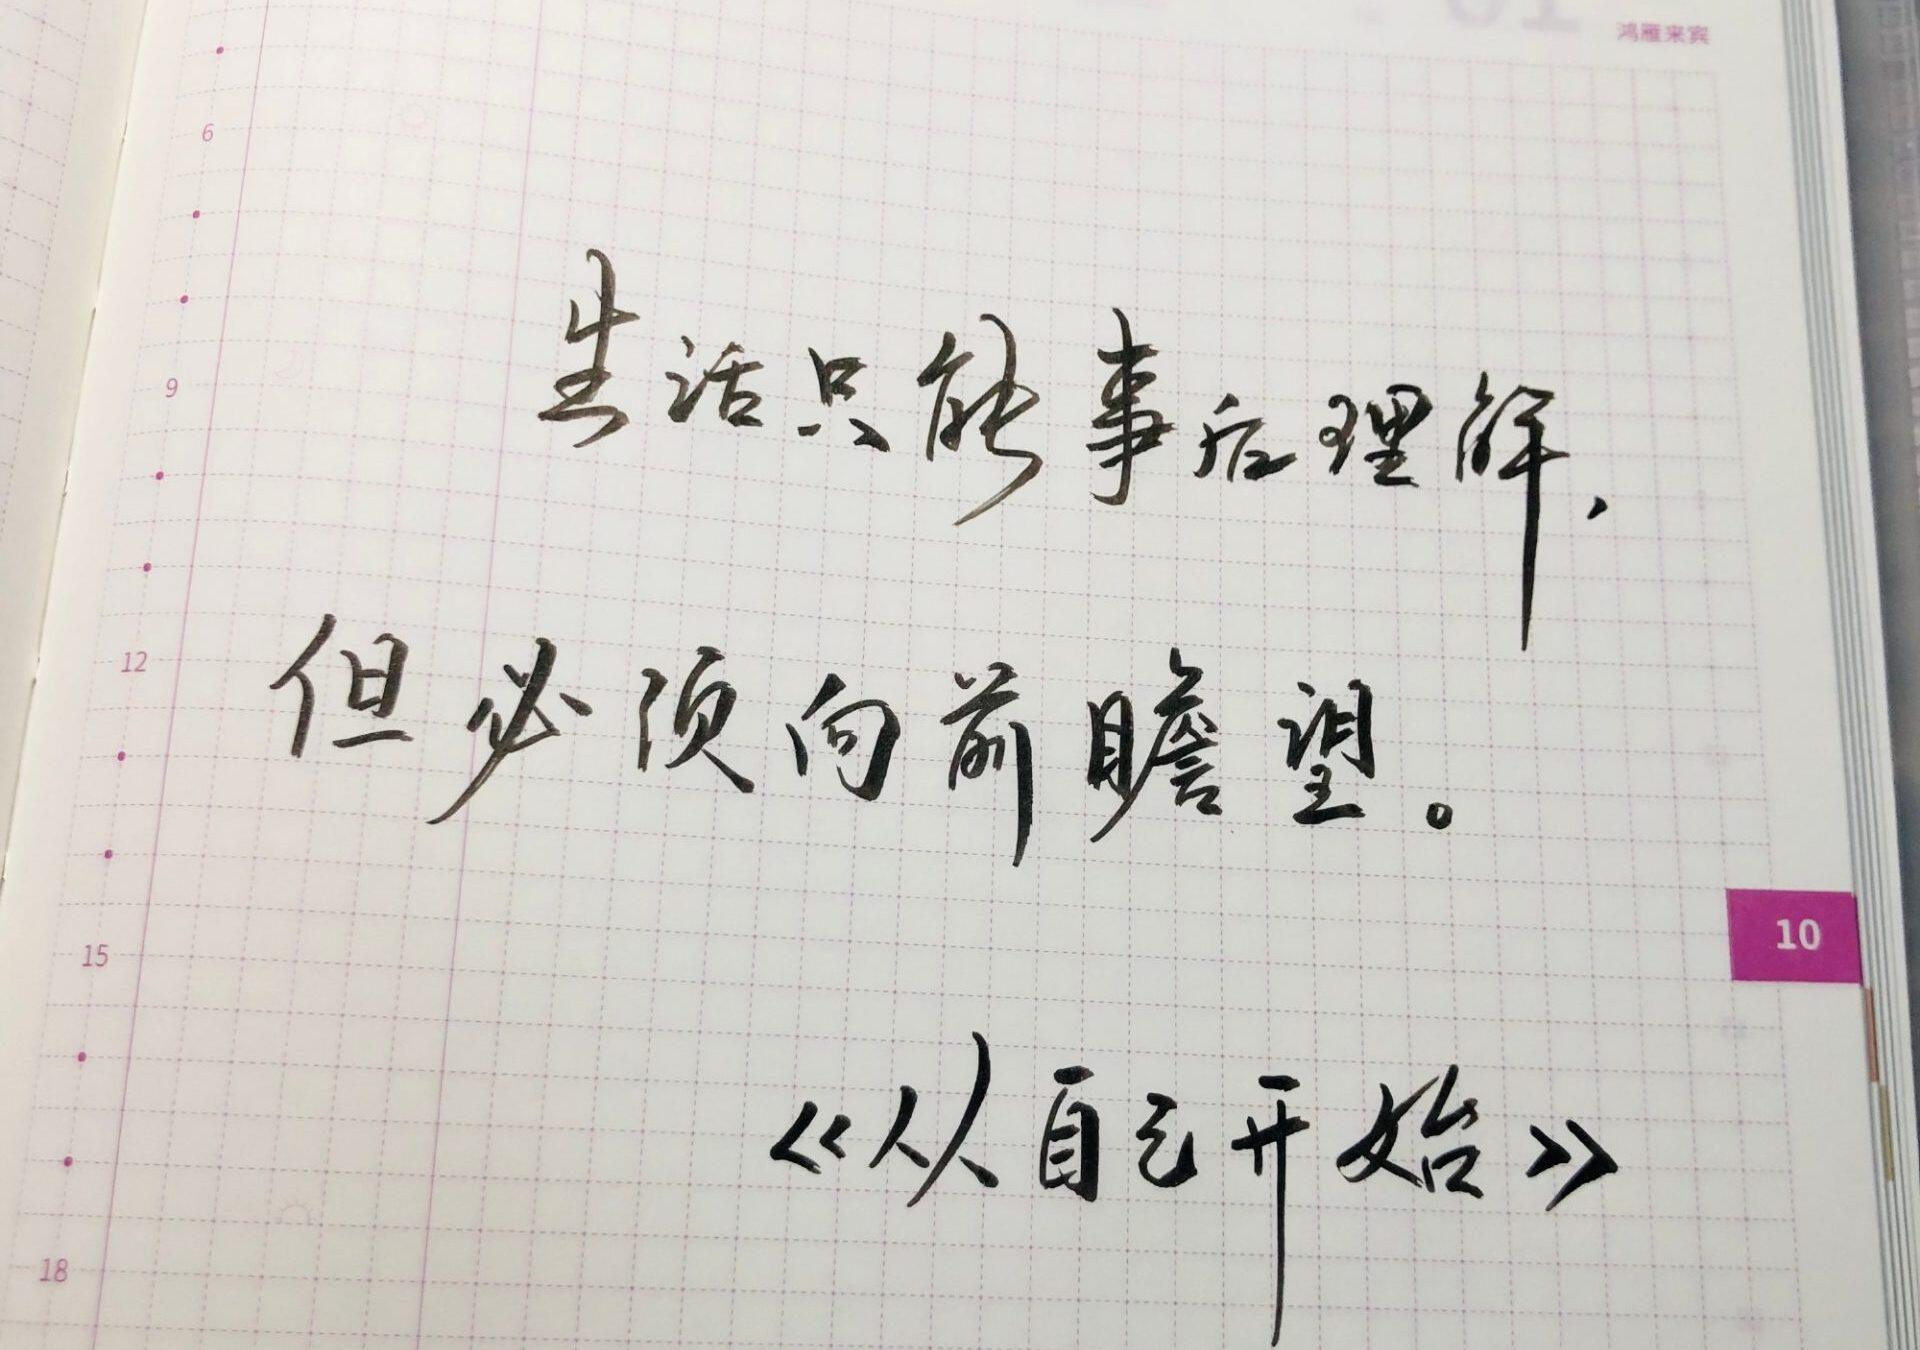 鸿雁来宾
6
生活只能事后理解，
9
但必须向前瞻望。
12
10
15
《从自己开始》
18